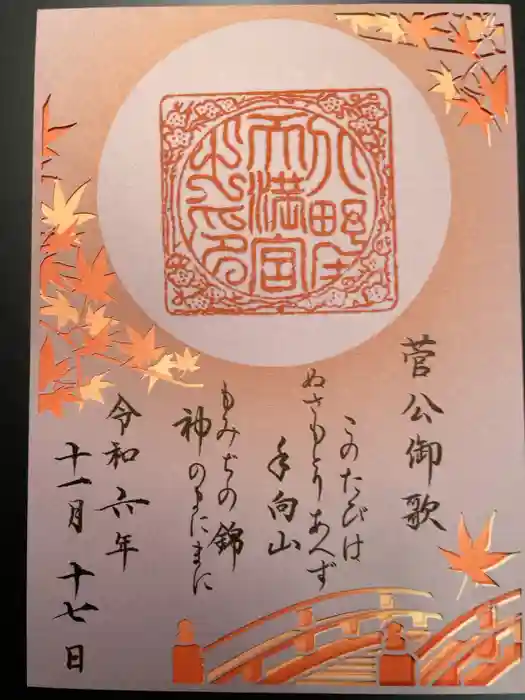 北野坐
天満宮
之印
菅公御歌
このたびは
ぬさもとりあへず
手向山
もみぢの錦
神のまにまに
令和六年
十一月十七日